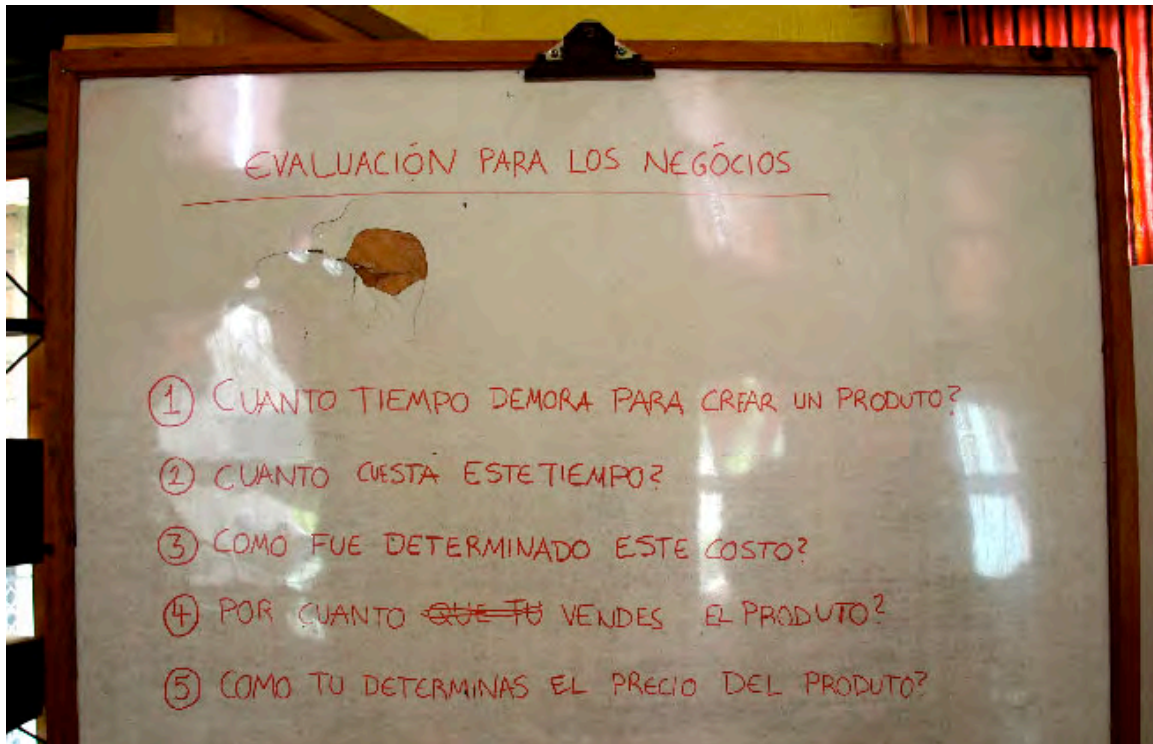 EVALUACIÓN PARA LOS NEGÓCIOS
① CUANTO TIEMPO DEMORA PARA CREAR UN PRODUTO?
② CUANTO CUESTA ESTE TIEMPO?
③ COMO FUE DETERMINADO ESTE COSTO?
④ POR CUANTO QUE TU VENDES EL PRODUTO?
⑤ COMO TU DETERMINAS EL PRECIO DEL PRODUTO?